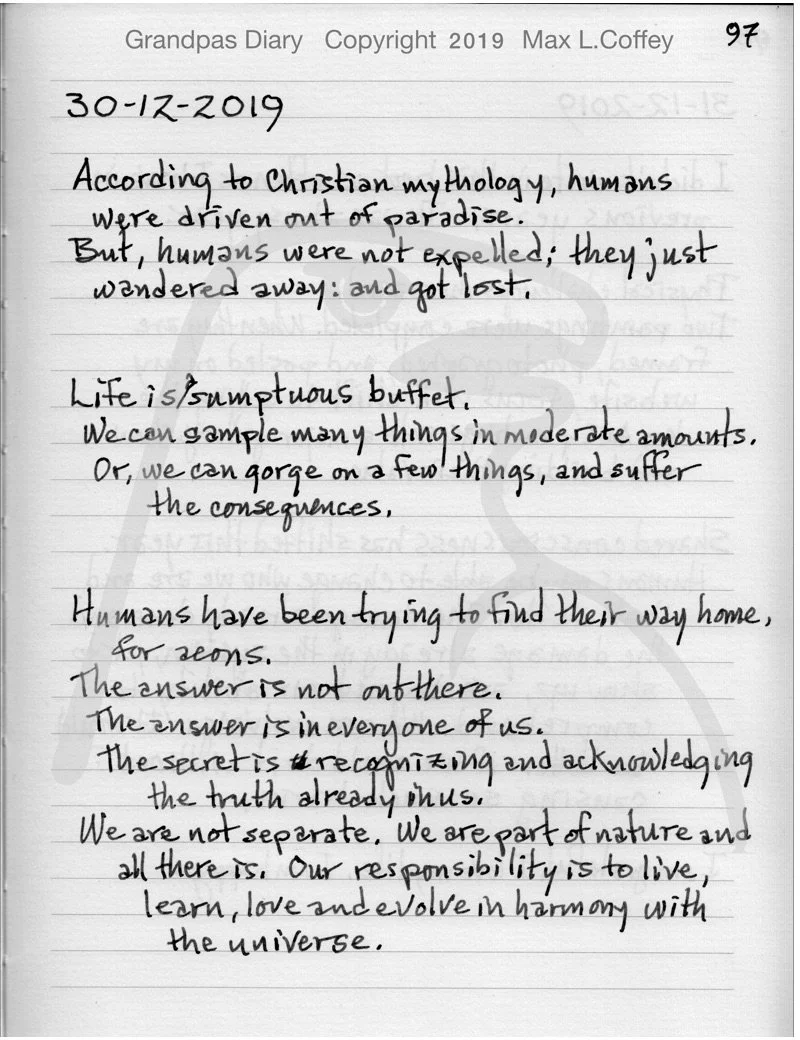 Grandpas Diary Copyright 2019 Max L.Coffey 97
30-12-2019
According to Christian mythology, humans
were driven out of paradise.
But, humans were not expelled; they just
wandered away: and got lost.
Life is sumptuous buffet.
We can sample many things in moderate amounts.
Or, we can gorge on a few things, and suffer
the consequences.
Humans have been trying to find their way home,
for aeons.
The answer is not out there.
The answer is in everyone of us.
The secret is recognizing and acknowledging
the truth already in us.
We are not separate. We are part of nature and
all there is. Our responsibility is to live,
learn, love and evolve in harmony with
the universe.